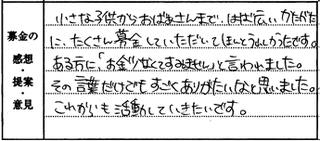 募金の
感想
・
提案
・
意見
小さな子供からおばあさんまで、はば広いかたがた
に、たくさん募金していただいてほんとうれしかったです。
ある方に「お金少なくてすみません」と言われました。
その言葉だけでもすごくありがたいなと思いました。
これからも活動していきたいです。